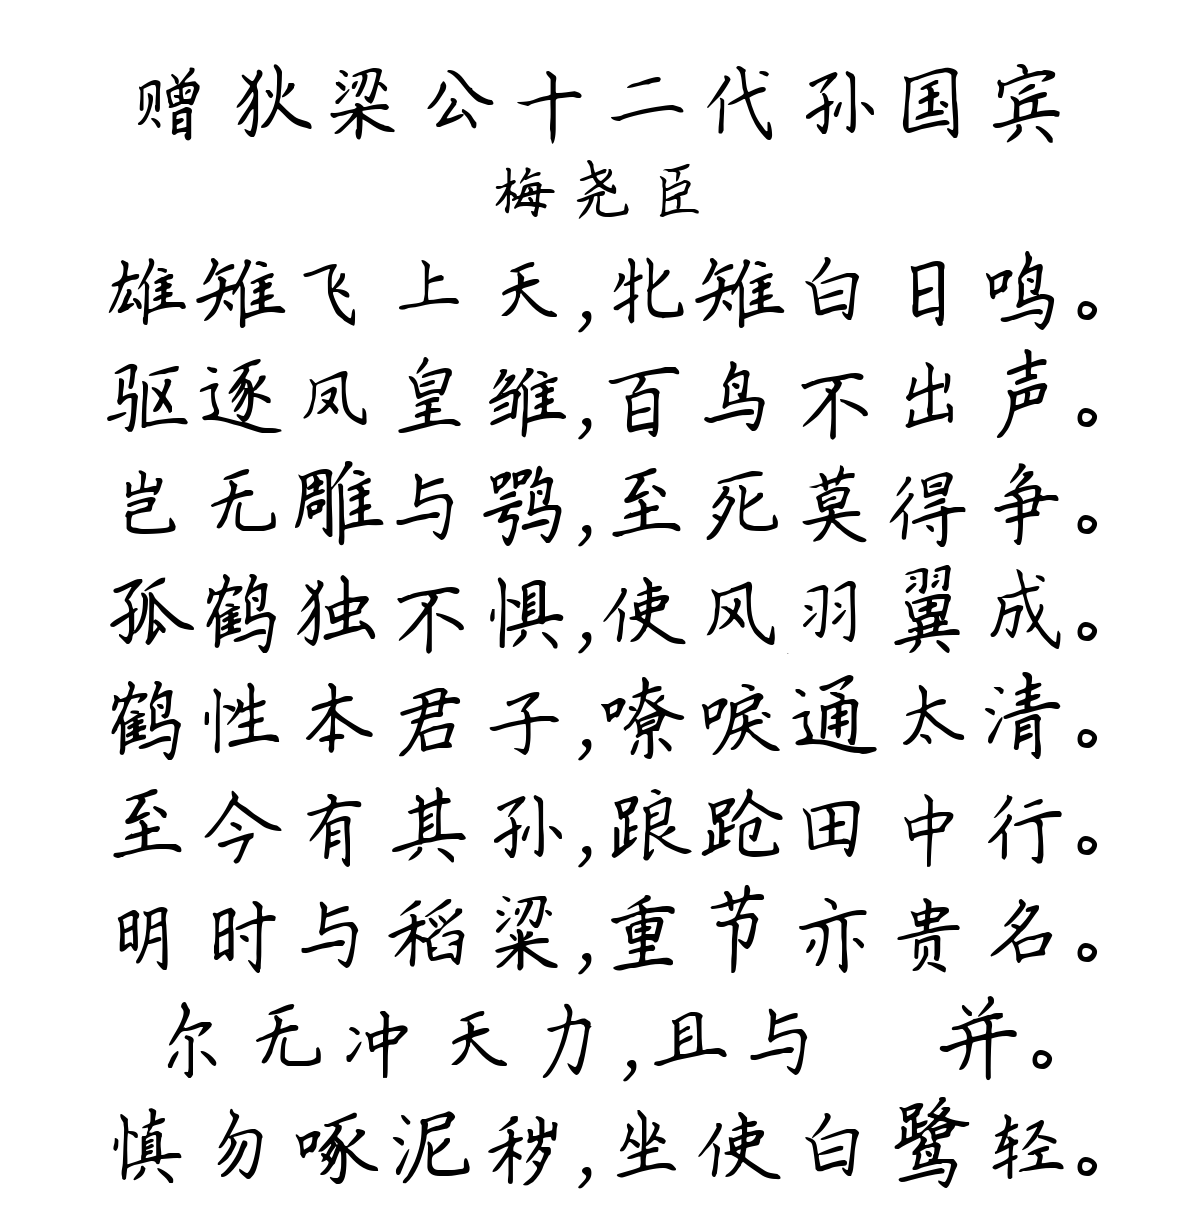 赠狄梁公十二代孙国宾
梅尧臣
雄雉飞上天,牝雉白日鸣。
驱逐凤皇雏,百鸟不出声。
岂无雕与鹗,至死莫得争。
孤鹤独不惧,使风羽翼成。
鹤性本君子,嘹唳通太清。
至今有其孙,踉跄田中行。
明时与稻粱,重节亦贵名。
尔无冲天力,且与 并。
慎勿啄泥秽,坐使白鹭轻。